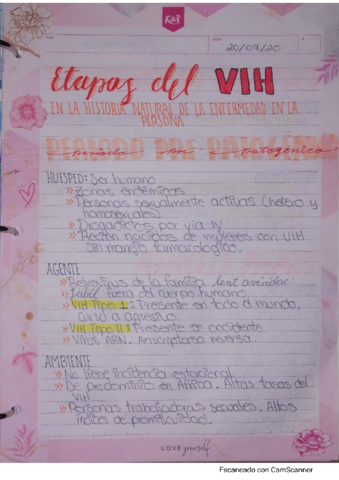 KIUT
FECHA
20/09/20
Etapas del VIH
EN LA HISTORIA NATURAL DE LA ENFERMEDAD EN LA
PERSONA
PERIODO PRE-PATOGÉNICO
periodo pre patogénico
HUESPED: Ser humano
» Zonas endémicas
» Personas sexualmente activas (hetero y
homosexuales)
» Drogadictos por vía IV
» Recién nacidos de mujeres con VIH
Sin manejo farmacologico.
AGENTE
» Retrovirus de la familia
» Labil fuera del cuerpo humano.
» VIH Tipo 1: Presente en todo el mundo,
curso a agresivo.
» VIH Tipo II: Presente en occidente
» Virus ARN. Transcriptasa reversa.
AMBIENTE
» No tiene incidencia estacional
» De predominio en Africa. Altas tasas del
VIH
» Personas trabajadoras sexuales. Altos
indices de promiscuidad.
LOVE yourself
Escaneado con CamScanner